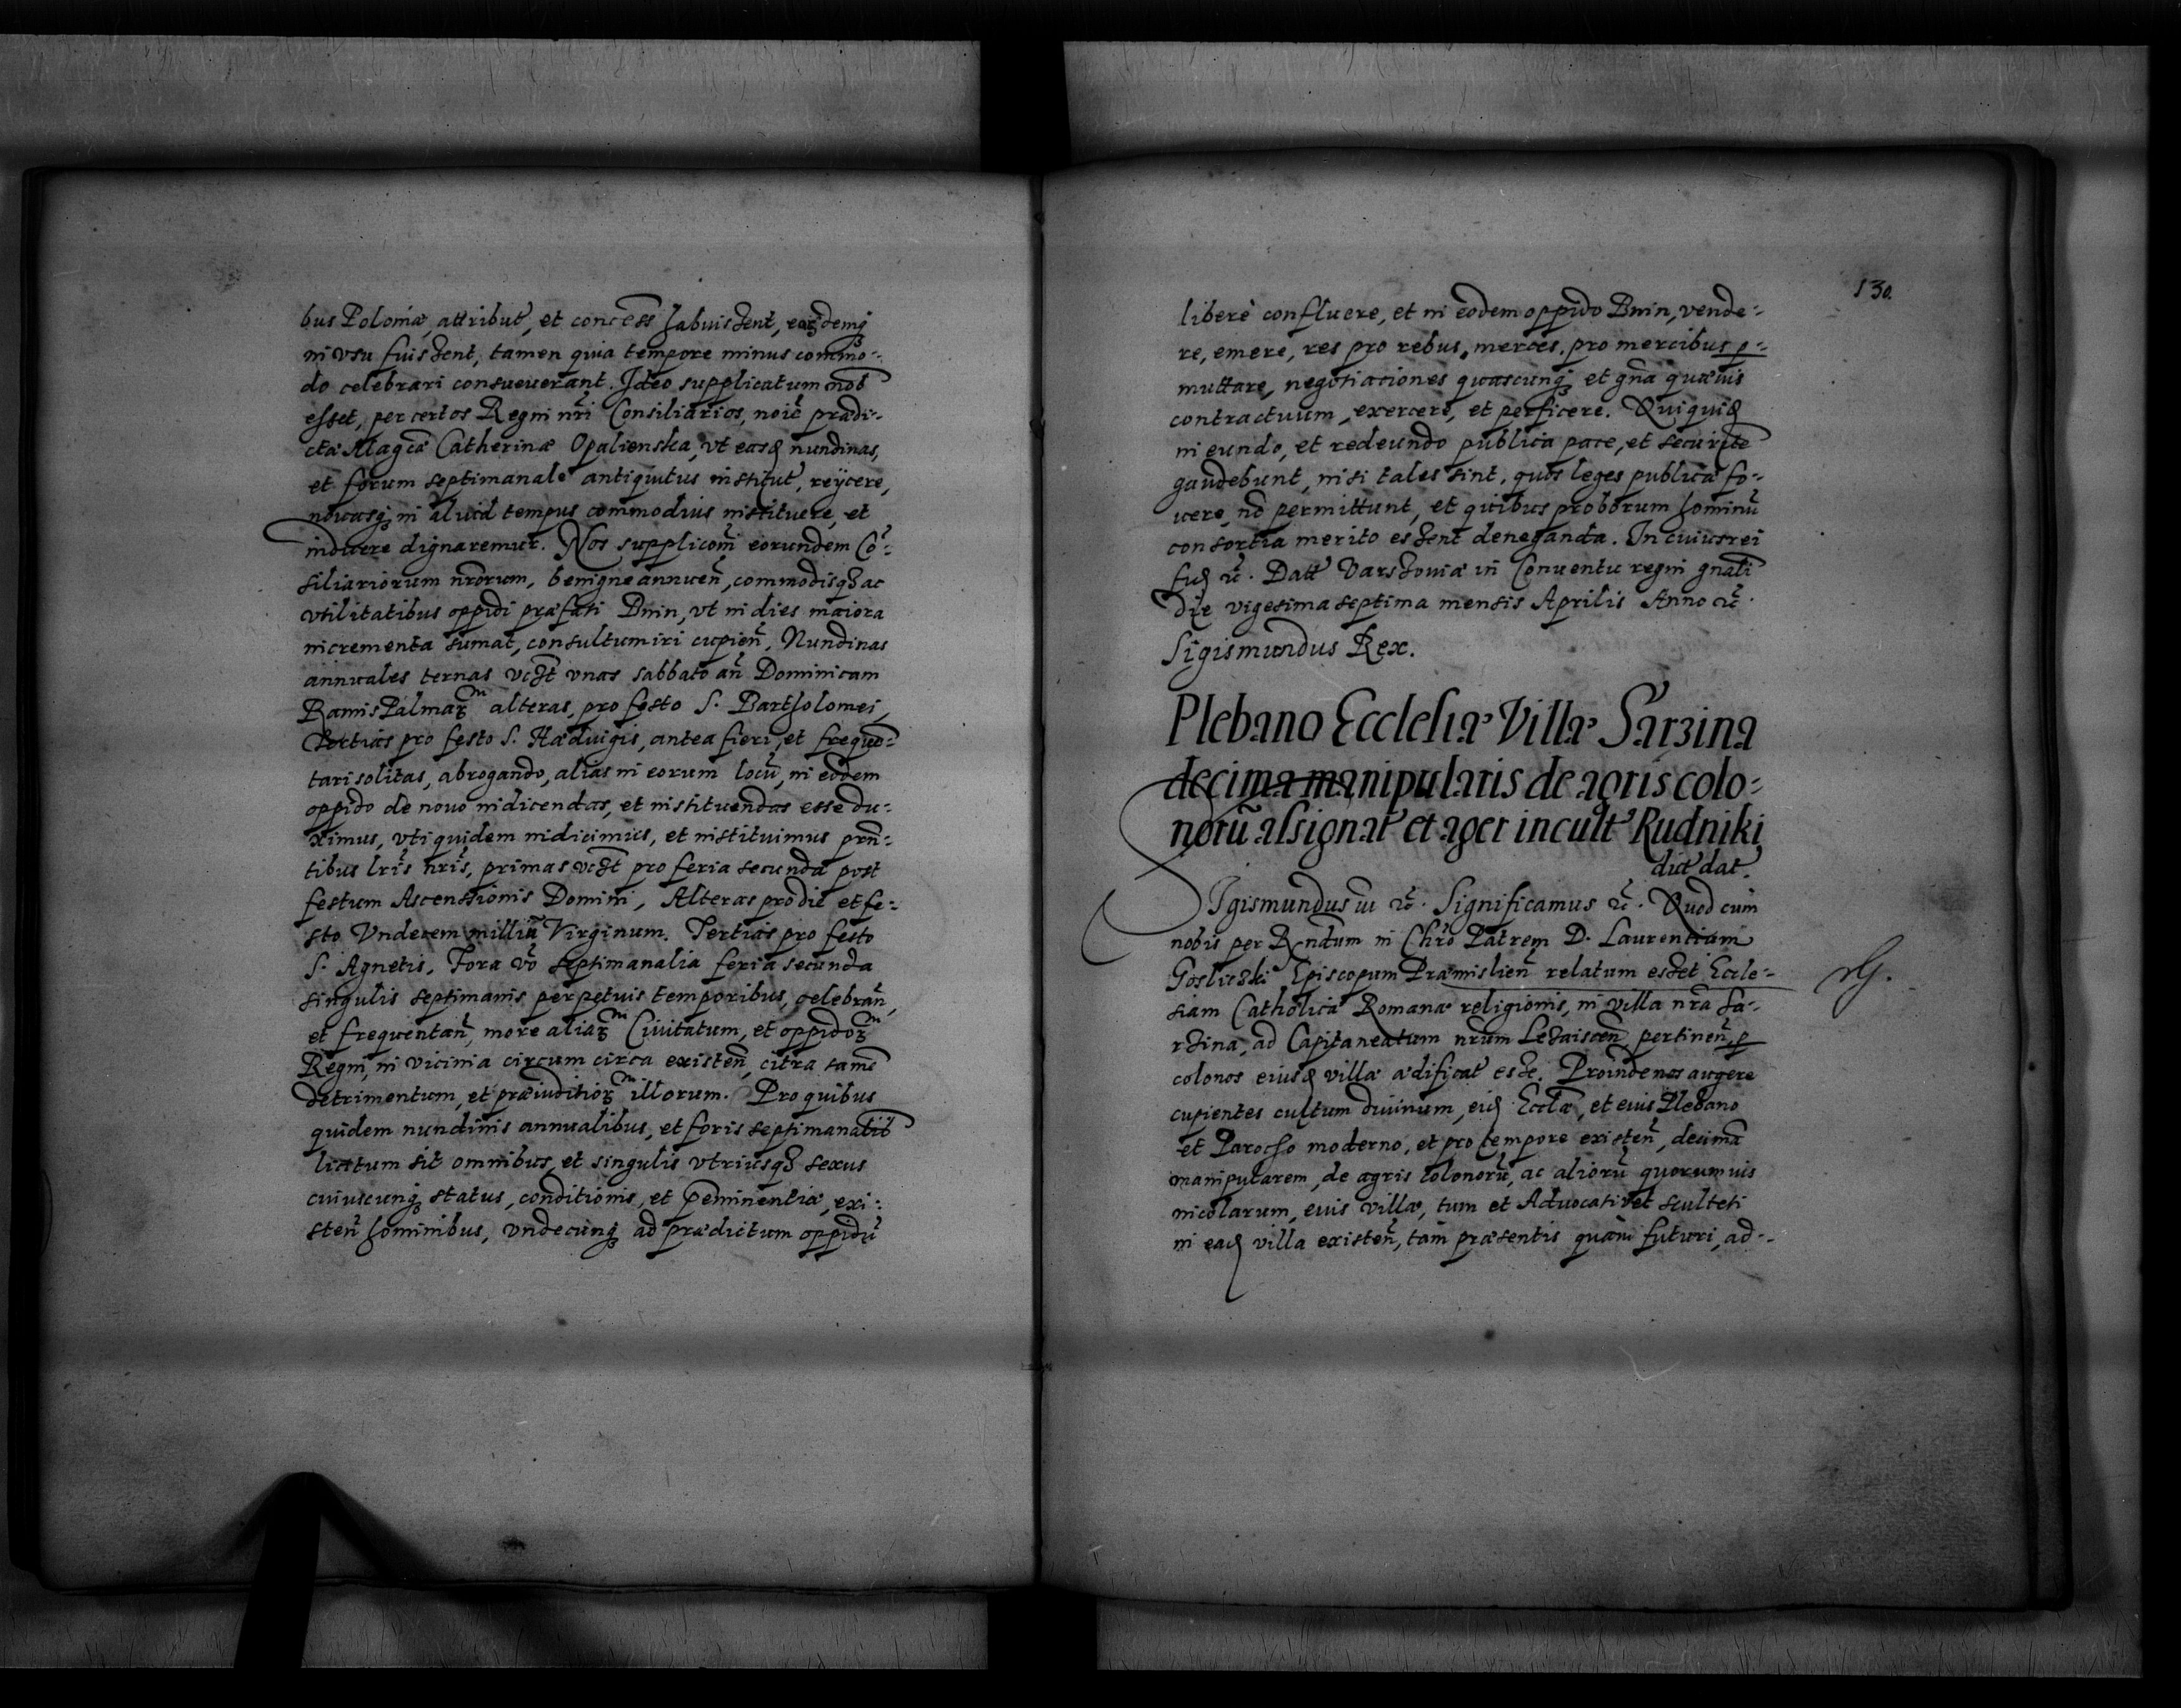 bus Poloniæ, attribut̃, et concess̃ habuissent, easdemq́
in vsu fuissent, tamen quia tempore minus commo-
do celebrari consueuerant. Ideo supplicatum nob̃
esset, per certos Regni nr̃i Consiliarios, noiẽ prædi-
ctæ Mag̃cæ Catherinæ Opalienska, vt easd̃ nundinas,
et forum septimanale antiquitus institut̃, reijcere,
nouasq́ in aliud tempus commodius instituere, et
inducere dignaremur. Nos supplicoñi eorundem Cõ-
siliariorum nr̃orum, benigne annueñ, commodisq́ ac
vtilitatibus oppidi præfati Bnin, vt in dies maiora
incrementa sumat, consultum iri cupieñ. Nundinas
annuales ternas vcz̃t vnas sabbato añ Dominicam
Ramis Palmar̃ alteras, pro festo S. Bartholomei,
Tertias pro festo S. Hæduigis, antea fieri, et frequẽ-
tari solitas, abrogando, alias in eorum locũ, in eodem
oppido de nouo indicendas, et instituendas esse du-
ximus, vti quidem indicimus, et instituimus prñ-
tibus lr̃is nr̃is, primas vcz̃t pro feria secunda post
festum Ascenssionis Domini, Alteras pro die et fe-
sto Vndecem milliũ Virginum. Tertias pro festo
S. Agnetis. Fora võ septimanalia feria secunda
singulis septimanis perpetuis temporibus, celebrañ,
et frequentañ, more aliar̃ Ciuitatum, et oppidor̃
Regni, in vicinia circum circa existeñ, citra tamẽ
detrimentum, et præiuditior̃ illorum. Pro quibus
quidem nundinis annualibus, et foris septimanalib̃
licitum sit omnibus, et singulis vtriusq́ sexus
cuiuscunq́ status, conditionis, et p̃eminentiæ, exi-
steñ hominibus, vndecunq́ ad prædictum oppidũ
130.
liberè confluere, et in eodem oppido Bnin, vende-
re, emere, res pro rebus, merces, pro mercibus p-
muttare, negotiationes quascunq́ et gñia quæuis
contractuum, exercere, et perficere. Quiquid̃
in eundo, et redeundo publica pace, et securitte
gaudebunt, nisi tales sint, quos leges publicæ fo-
uere, nõ permittunt, et quibus proborum hominũ
consortia merito essent deneganda. In cuius rei
fid̃ rc̃. Datt̃ Varssouiæ in Conuentu regni gñali
die vigesima septima mensis Aprilis Anno rc̃.
Sigismundus Rex.
Plebano Ecclesiæ Villæ Sarzina
decima manipularis de agris colo-
norũ assignat̃ et ager incult̃ Rudniki
dict̃ dat̃.
Sigismundus iii rc̃. Significamus rc̃. Quod cum
nobis per Rndum in Chr̃o Patrem D. Laurentium
Goslicski Episcopum Præmislieñ relatum esset Eccle-
siam Catholicæ Romanæ religionis, in villa nr̃a Sa-
rzina, ad Capitaneatum nr̃um Lezaisceñ, pertineñ, p
colonos eiusd̃ villæ ædificat̃ esse. Proinde nos augere
cupientes cultum diuinum, eid̃ Eccl̃æ, et eius Plebano
et Parocho moderno, et pro tempore existeñ, decimã
manipularem, de agris colonorũ, ac aliorũ quorumuis
incolarum, eius villæ, tum et Aduocati vel sculteti
in ead̃ villa existeñ, tam præsentis quam futuri, ad-